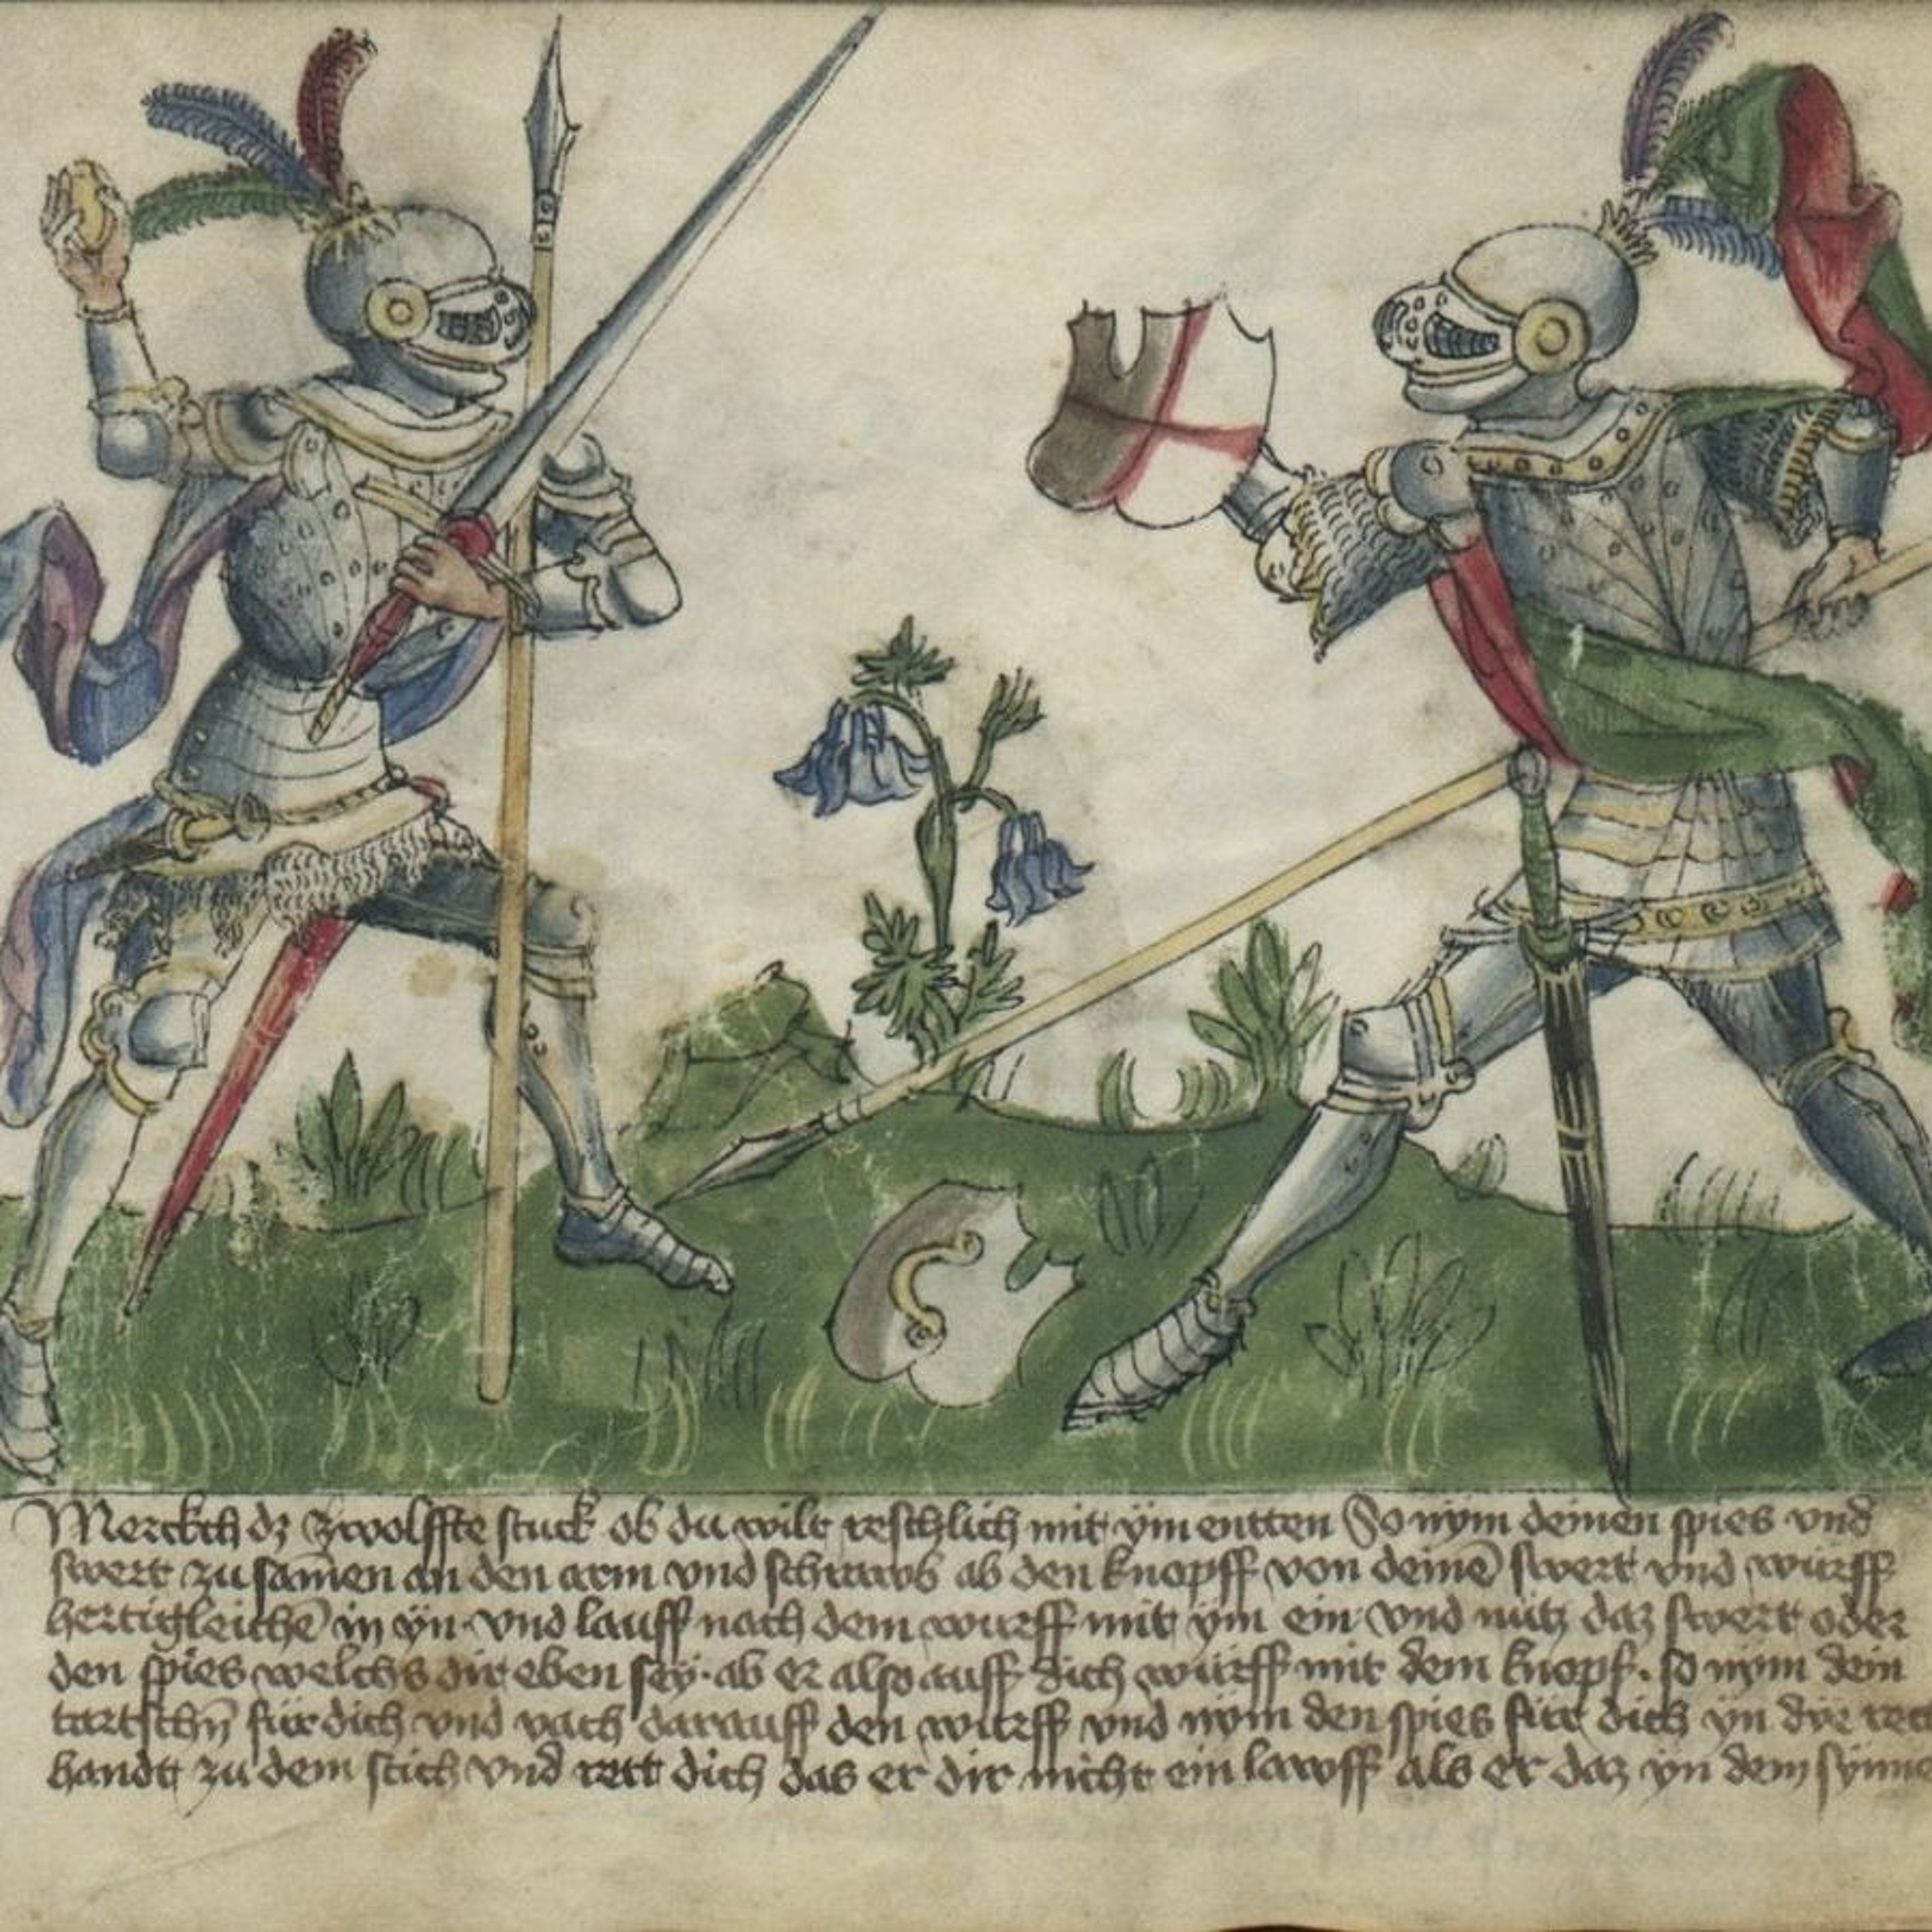 Merckch dz zwolffte stuck ob du wilt reschlich mit ÿm entten So nÿm deinen spies vnd
swert zu samen an den arm vnd schraws ab den knopff von deinē swert vnd würff
hertigleichē in ÿn vnd lauff nach dem wurff mit ÿm ein vnd nütz daz swert oder
den spies welchs dir eben seÿ. ob er also auff dich würff mit dem knopf. so nÿm dein
tartschñ für dich vnd vach darauff den wurff vnd nÿm den spies für dich ÿn dÿe
handt zu dem stich vnd rett dich das er dir nicht ein lawff als er daz ÿn dem